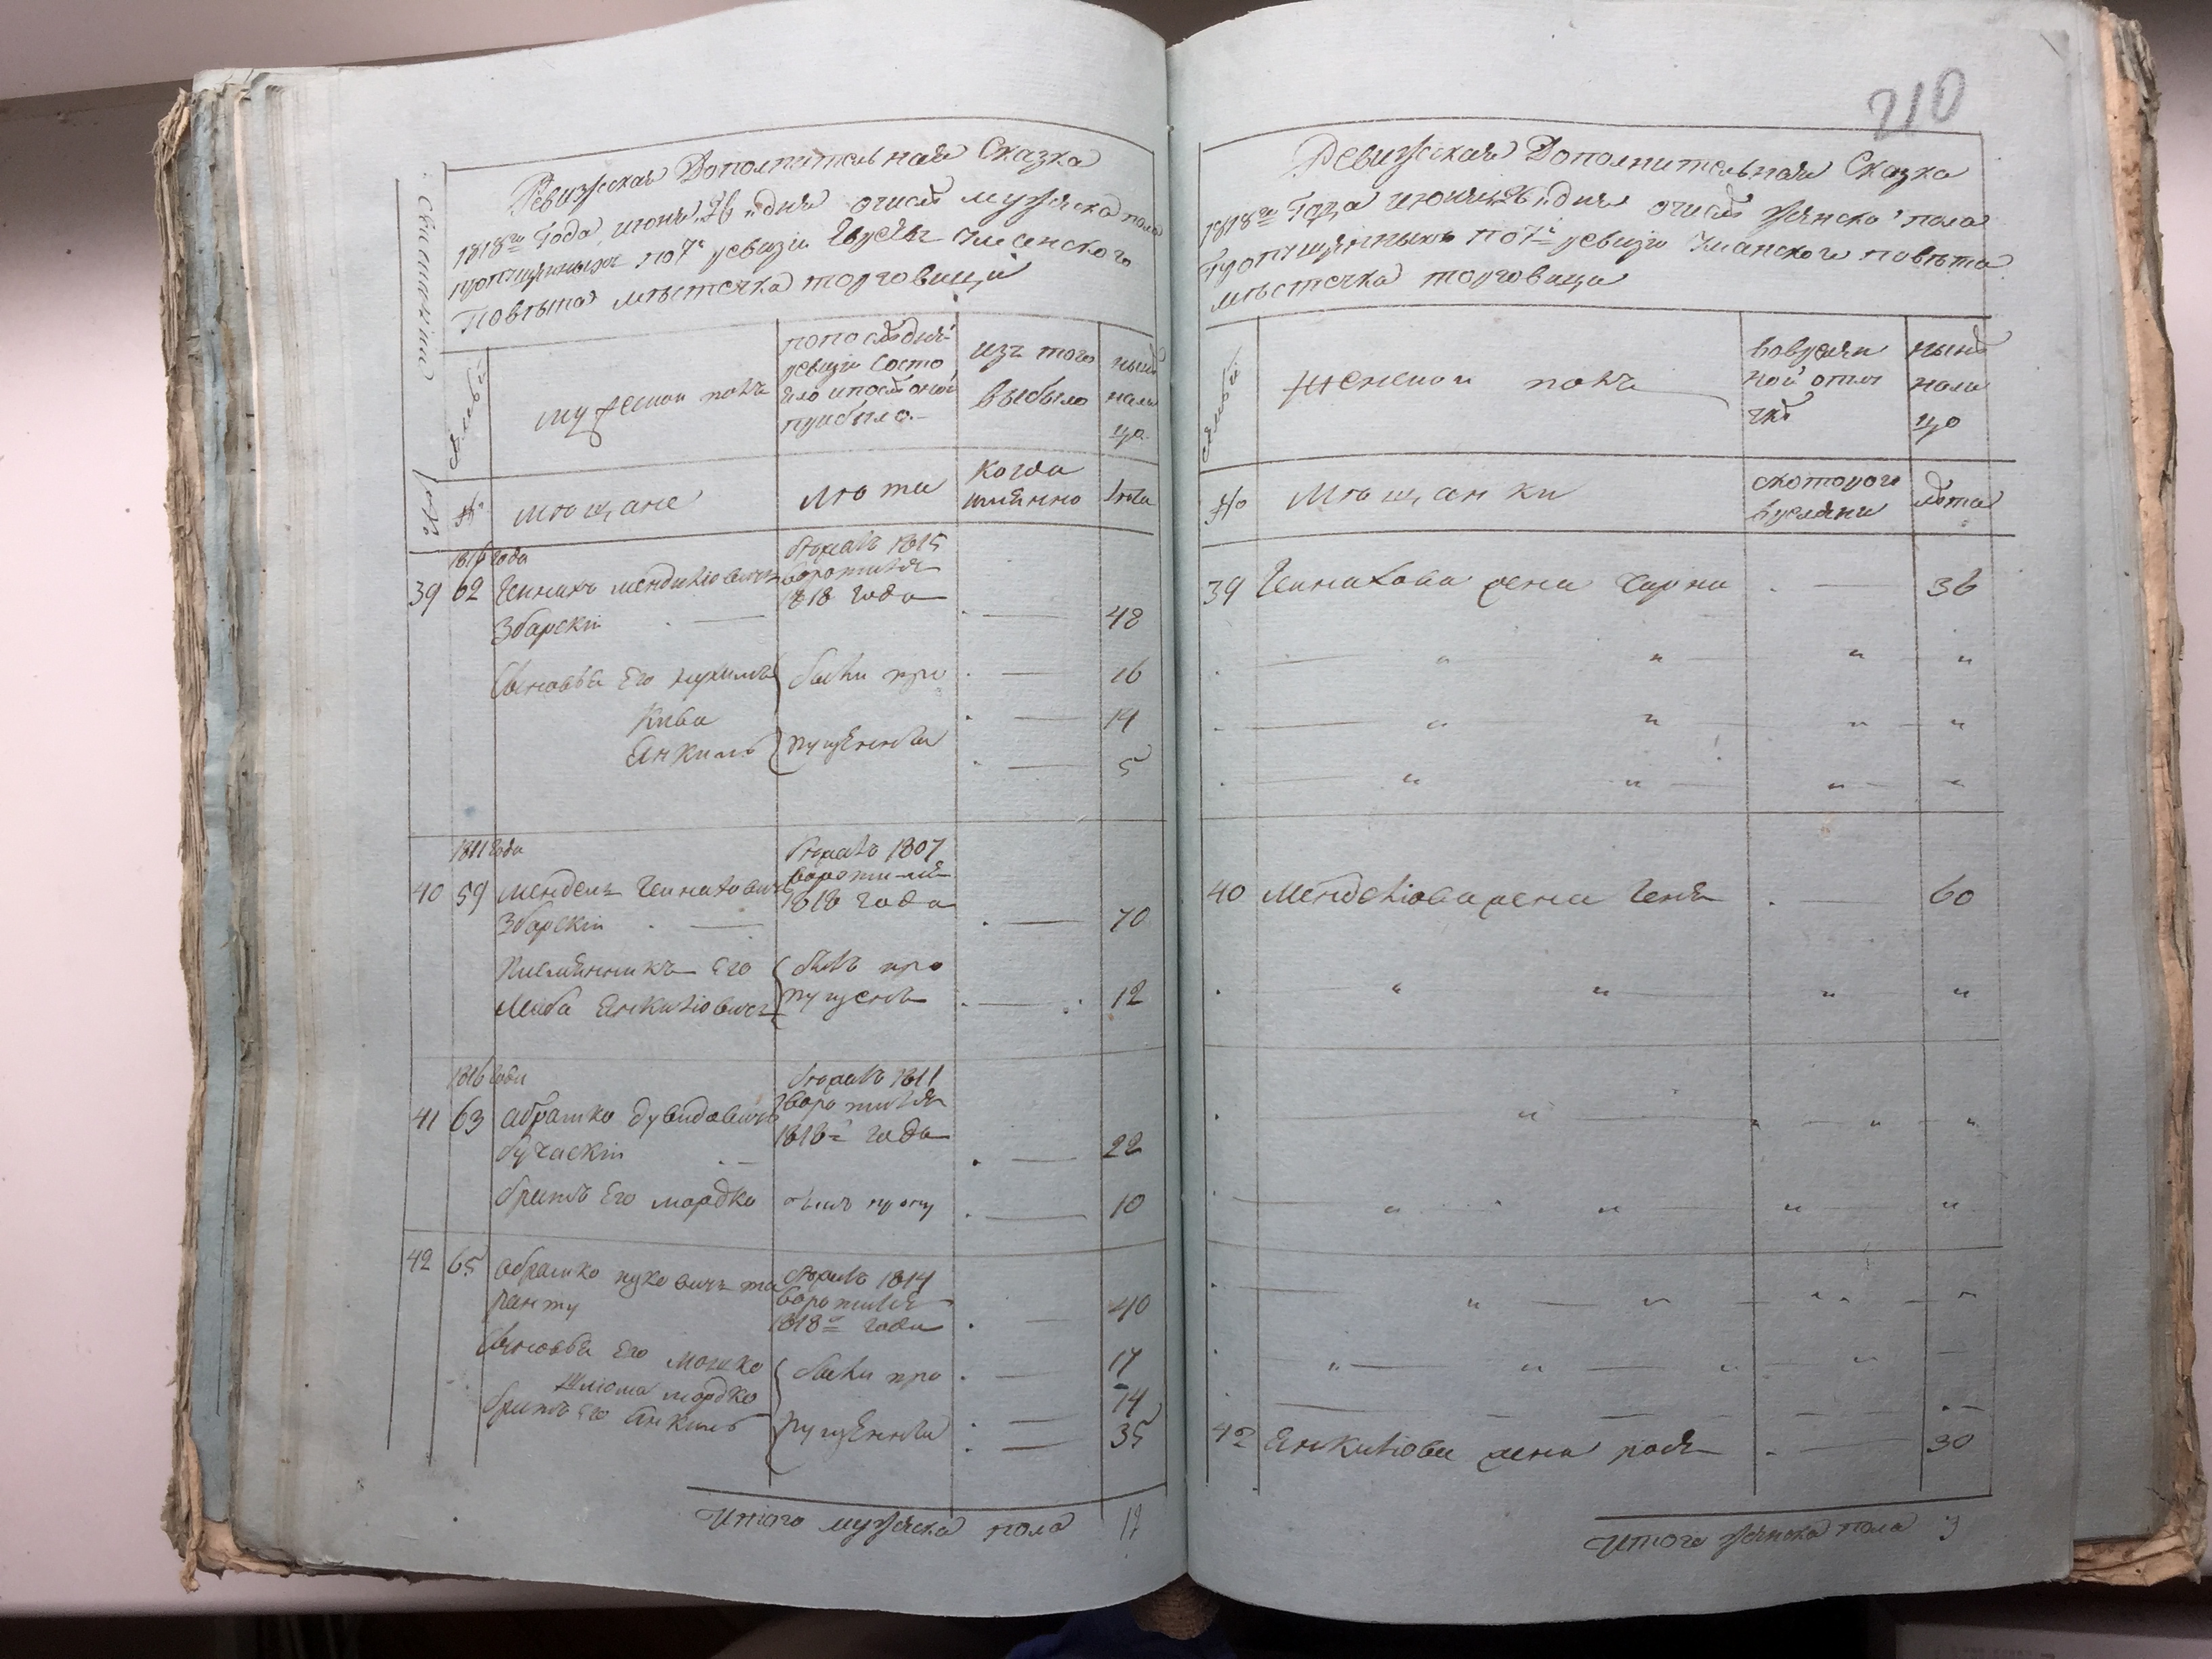 Ревизская Дополнительная Сказка
1818го Года июня 26 дня о числе мужеска пола
пропущенныхъ по 7й ревизіи Евреяхъ Уманского
Повѣта мѣстечка торговици
семьи
мужескои полъ
по последней
ревизіи состо
яло и после оной
прибыло
изъ того
выбыло
ныне
нали
цо
№
мѣщане
лѣта
когда
имянно
лѣта
1816 года
39 62 Гейнихъ Мендиліовичь
Збарскій
бежалъ 1815
воротился
1818 года
48
Сыновья Его Нухимъ
были про
16
Кива
14
Янкиль
пущенны
5
1811 года
40 59 Мендель Гейнаховичь
Збарскій
бежалъ 1807
воротился
1818 года
70
Племянникъ Его
былъ про
Лейба Янкиліовичь
пущенъ
12
1816 года
41 63 Абрамко Дувидовичь
Бучаскій
бежалъ 1811
воротился
1818го года
22
братъ Его Мордко
10
42 65 Абрамко
бежалъ 1814
воротился
1818го года
40
Сыновья Его Мошко
были про
17
Шліома Мордко
14
братъ Его Янкиль
пущенны
35
Итого мужеска пола 12
210
Ревизская Дополнительная Сказка
1818го Года июня 26 дня о числе женска пола
Пропущенныхъ по 7й ревизіи Уманского повѣта
мѣстечка торговици
семьи
женскои полъ
во времян
ной отлу
чке
ныне
нали
цо
№
мѣщанки
с которого
времяни
лѣта
39 Гейнахова жена Сурка 36
40 Менделіова жена Геня 60
42 Янкиліова жена 30
Итого женска пола 3